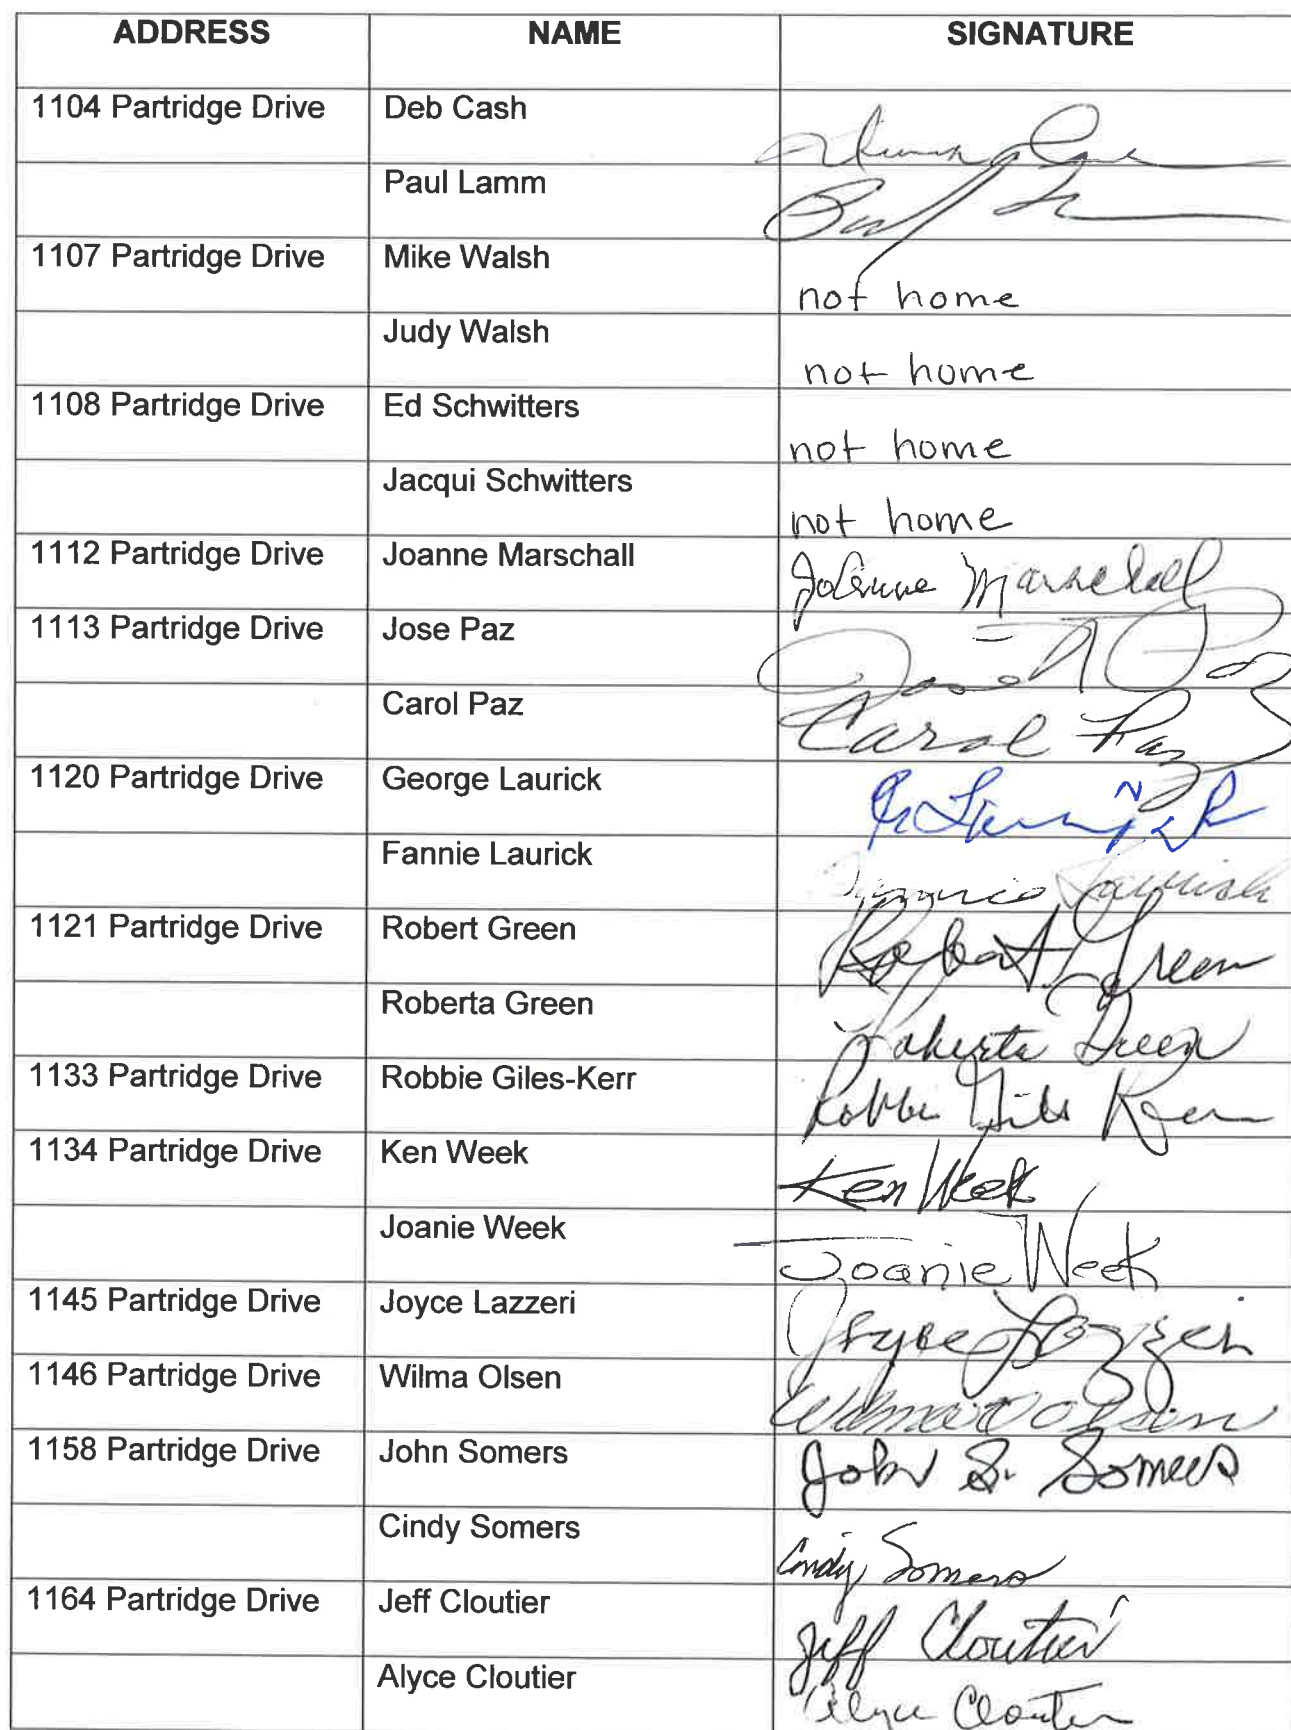 ADDRESS NAME SIGNATURE
1104 Partridge Drive Deb Cash
Paul Lamm Paul
1107 Partridge Drive Mike Walsh not home
Judy Walsh not home
1108 Partridge Drive Ed Schwitters not home
Jacqui Schwitters not home
1112 Partridge Drive Joanne Marschall JoAnne Marschall
1113 Partridge Drive Jose Paz Paz
Carol Paz Carol Paz
1120 Partridge Drive George Laurick
Fannie Laurick
1121 Partridge Drive Robert Green Robert Green
Roberta Green Roberta Green
1133 Partridge Drive Robbie Giles-Kerr Robbie Giles Kerr
1134 Partridge Drive Ken Week Ken Week
Joanie Week Joanie Week
1145 Partridge Drive Joyce Lazzeri Joyce Lazzeri
1146 Partridge Drive Wilma Olsen Wilma Olsen
1158 Partridge Drive John Somers John S. Somers
Cindy Somers Cindy Somers
1164 Partridge Drive Jeff Cloutier Jeff Cloutier
Alyce Cloutier Alyce Cloutier